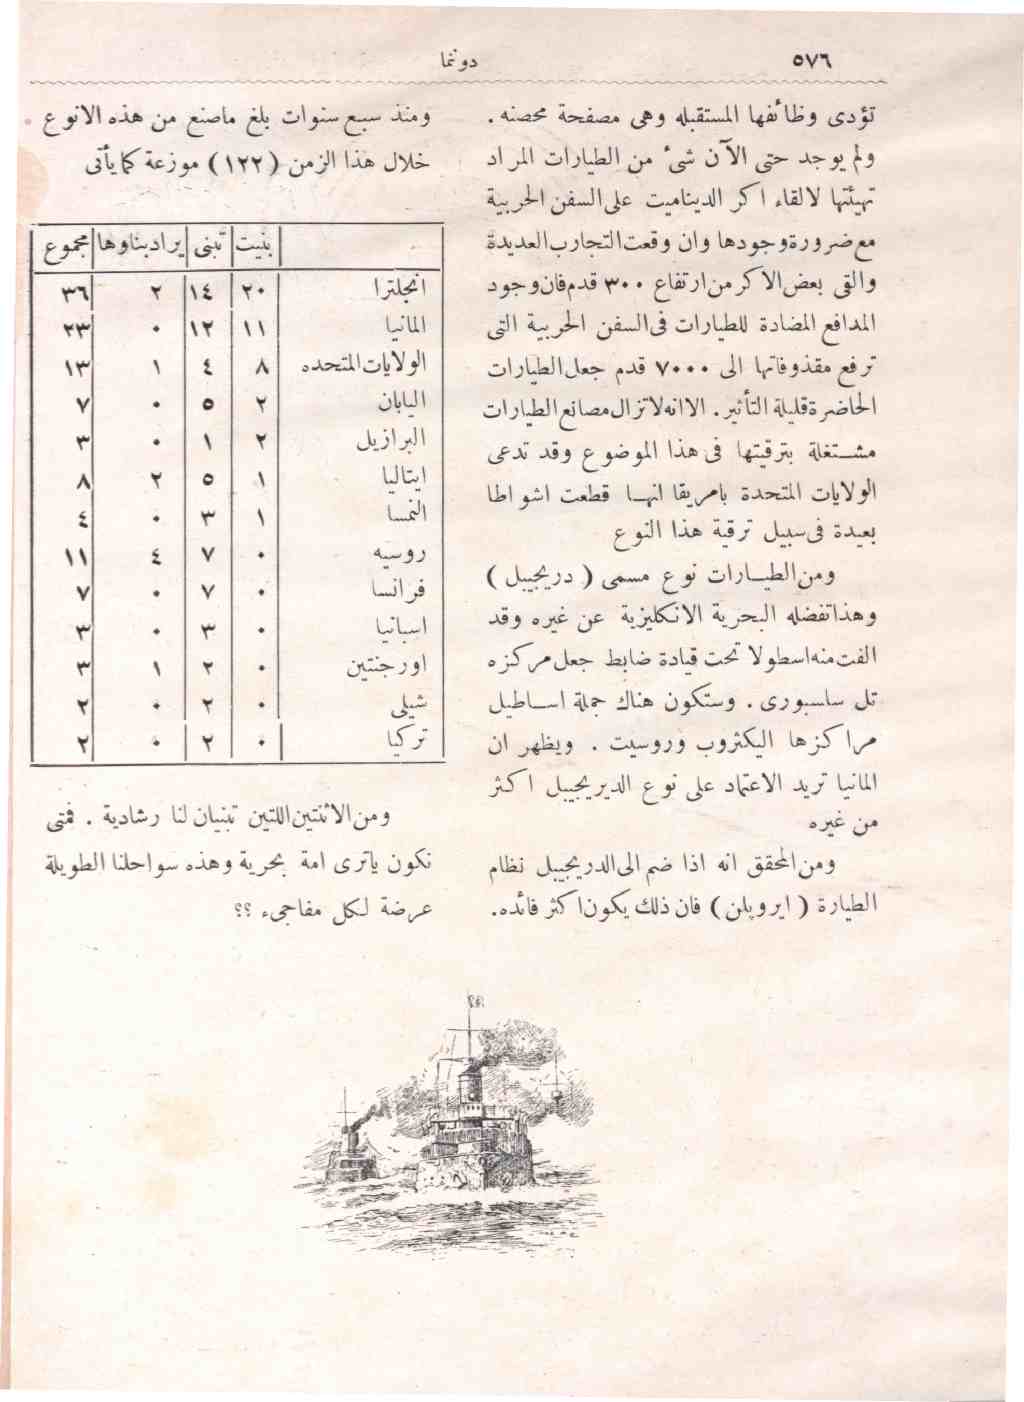 ٥٧٦
دونما
تؤدى وظائفها المستقبله وهى مصفحة محصنه .
ولم يوجد حتى الآن شئ من الطيارات المراد
تهيئتها لالقاء اكر الديناميت على السفن الحربية
مع ضرورة وجودها وان وقعت التجارب العديدة
والقى بعض الاكر من ارتفاع ٣٠٠ قدم فان وجود
المدافع المضادة للطيارات فى السفن الحربية التى
ترفع مقذوفاتها الى ٧٠٠٠ قدم جعل الطيارات
الحاضرة قليلة التأثير . الا انه لا تزال مصانع الطيارات
مشتغلة بترقيتها فى هذا الموضوع وقد تدعى
الولايات المتحدة بامريقا انها قطعت اشواطا
بعيدة فى سبيل ترقية هذا النوع
ومن الطيارات نوع مسمى ( دريجيبل )
وهذا تفضله البحرية الانكليزية عن غيره وقد
الفت منه اسطولا تحت قيادة ضابط جعل مركزه
تل سلسبورى . وستكون هناك جملة اساطيل
مراكزها اليكثروب وروسيت . ويظهر ان
المانيا تريد الاعتماد على نوع الديريجيبل اكثر
من غيره
ومن المحقق انه اذا ضم الى الدريجيبل نظام
الطيارة ( ايروپلن ) فان ذلك يكون اكثر فائده.
ومنذ سبع سنوات بلغ ماصنع من هذه الانوع
خلال هذا الزمن ( ١٢٢ ) موزعة كما يأتى
بنيت تبنى يراد بناوها مجموع
انجلترا ٢٠ ١٤ ٢ ٣٦
المانيا ١١ ١٢ ٠ ٢٣
الولايات المتحده ٨ ٤ ١ ١٣
اليابان ٢ ٥ ٠ ٧
البرازيل ٢ ١ ٠ ٣
ايتاليا ١ ٥ ٢ ٨
النمسا ١ ٣ ٠ ٤
روسيه ٠ ٧ ٤ ١١
فرانسا ٠ ٧ ٠ ٧
اسبانيا ٠ ٣ ٠ ٣
اورجنتين ٠ ٢ ١ ٣
شيلى ٠ ٢ ٠ ٢
تركيا ٠ ٢ ٠ ٢
ومن الاثنتين اللتين تبنيان لنا رشادية . فمتى
نكون ياترى امة بحرية وهذه سواحلنا الطويلة
عرضة لكل مفاجىء ؟؟